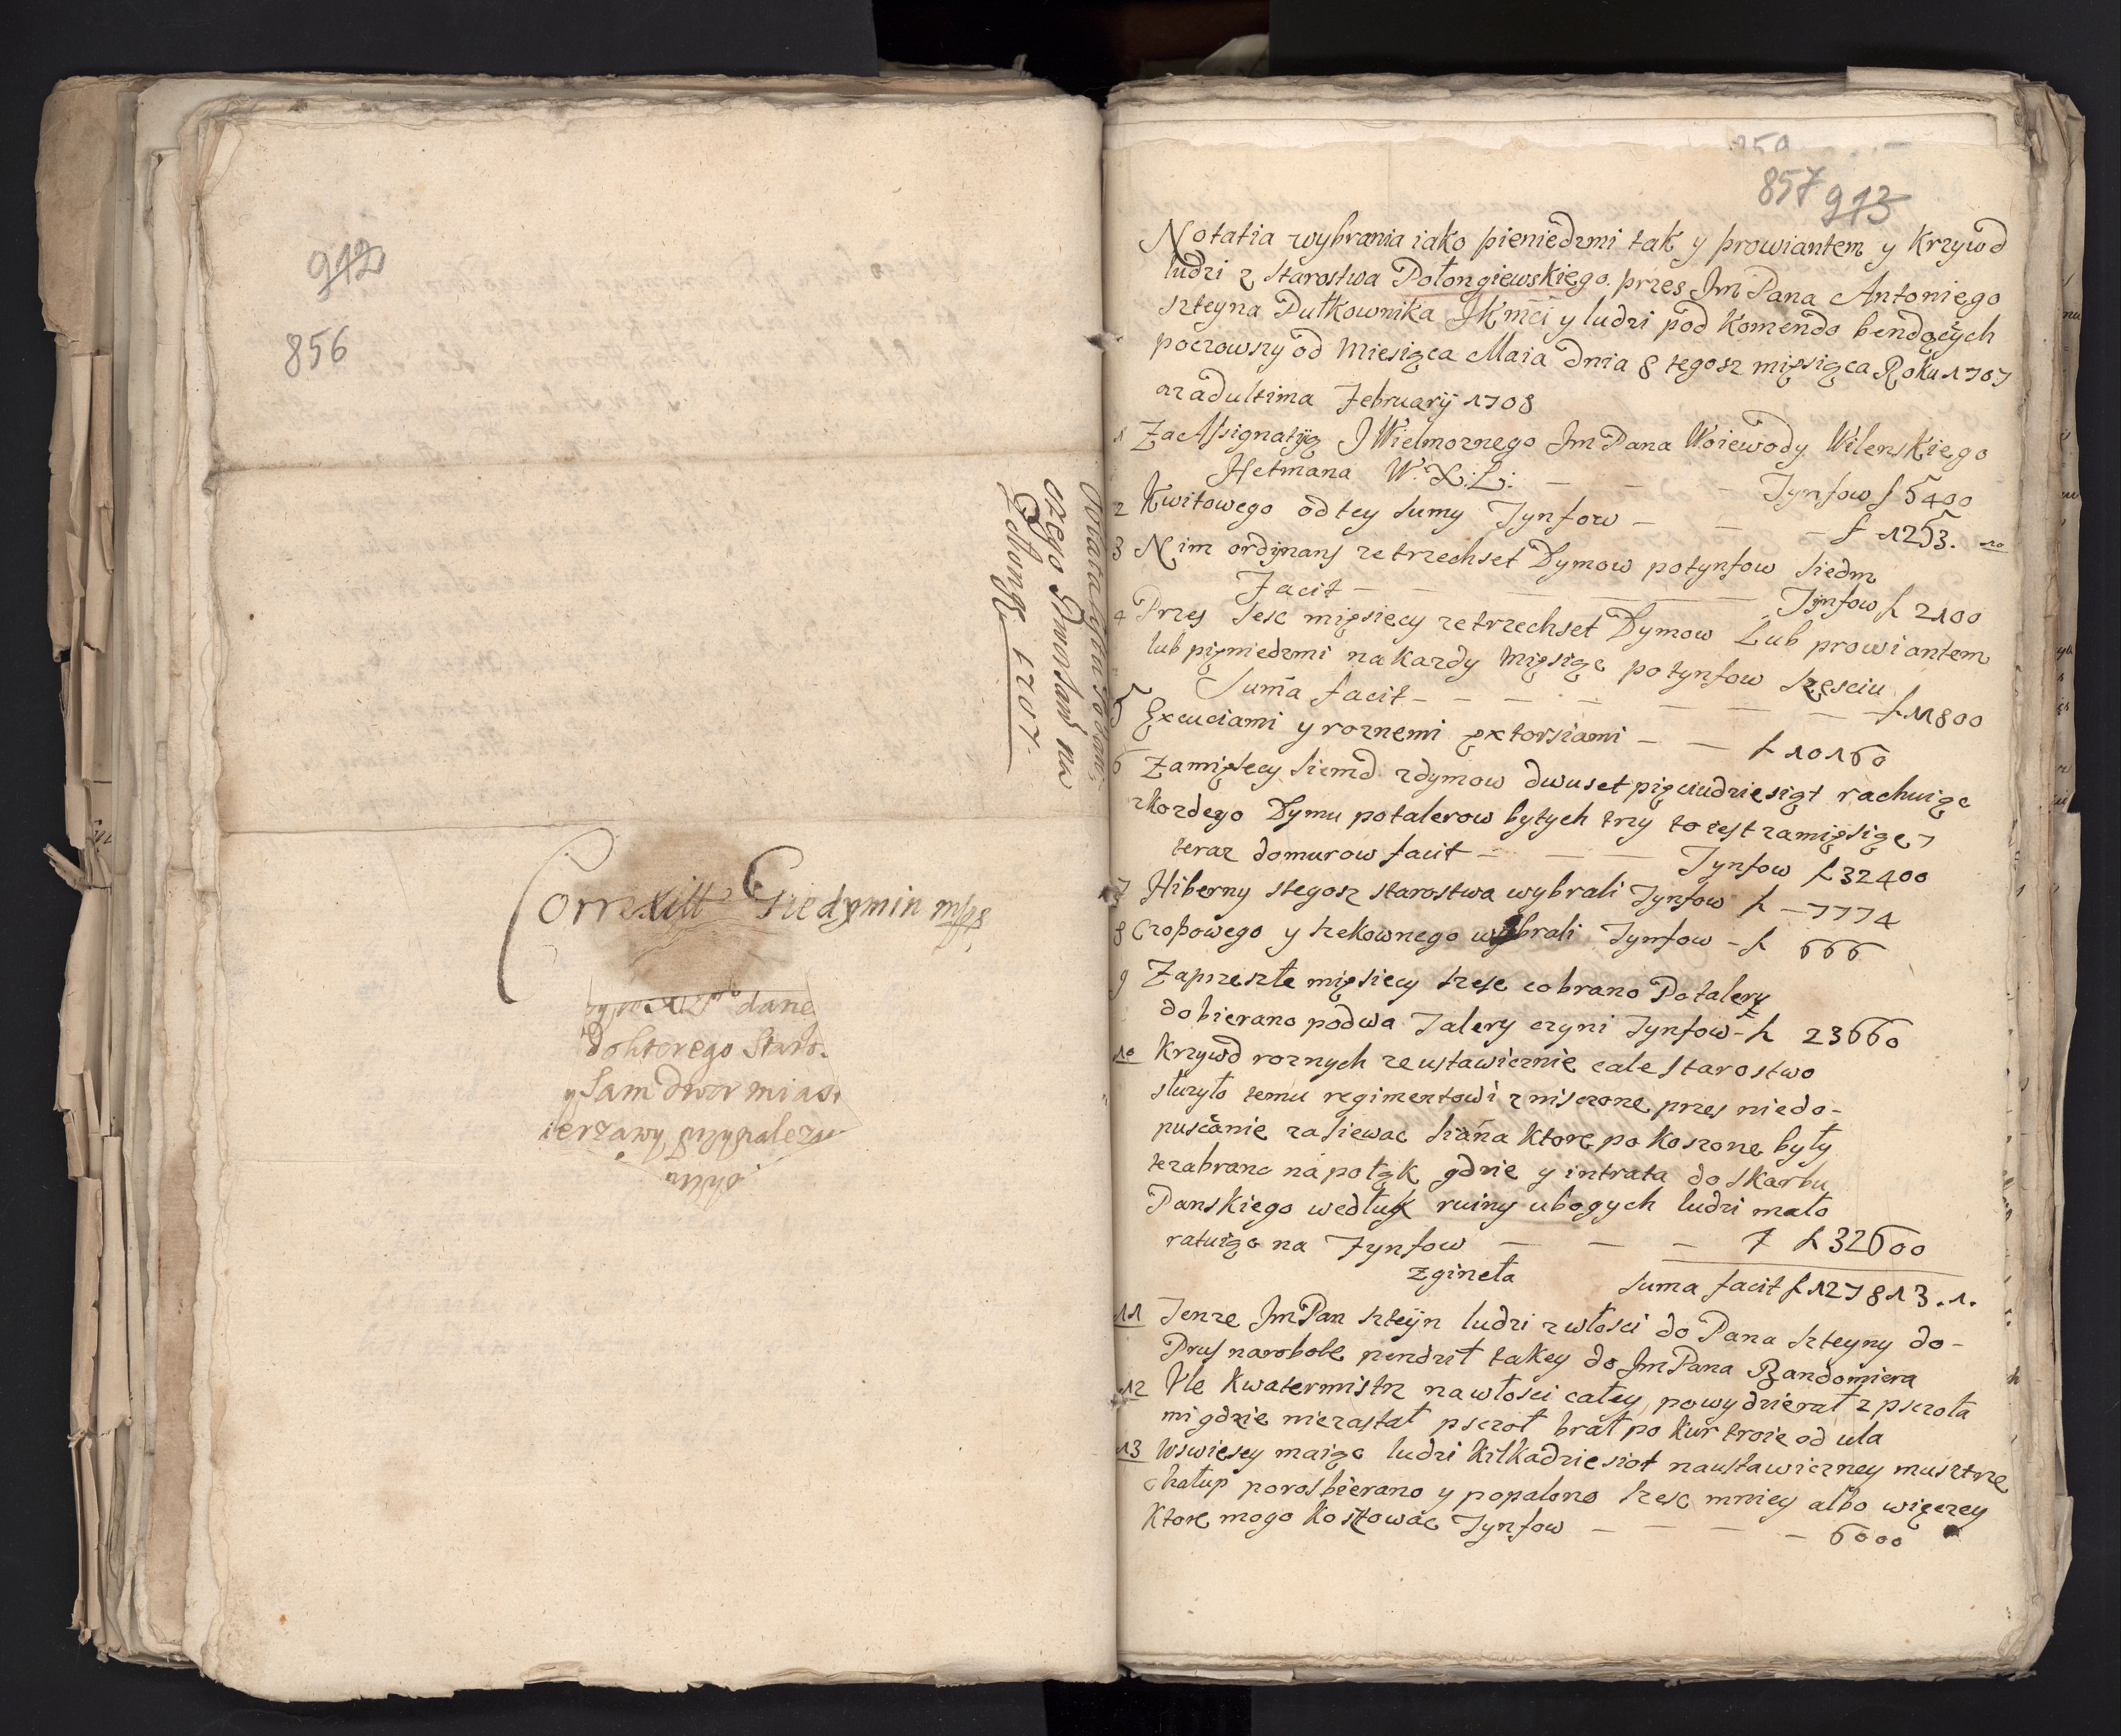 912
856
1707
Correxitt Giedymin mpp
dane
do ktorego Staro-
y Sam Dwor mias
857 913
Notatia wybrania iako pieniedzmi tak y prowiantem y Krzywd
ludzi z Starostwa Połongiewskiego. przes Jm Pana Antoniego
szteyna Pułkownika JKmci y ludzi pod Komendo bendących
poczowszy od Miesiąca Maia Dnia 8 tegosz mięsiąca Roku 1707
az ad ultima February 1708
1 Za Assignatyą J Wielmoznego Jm Pana Woiewody Wilenskiego
Hetmana W. X. L: — — — Tynfow f 5400
2 Kwitowego od tey sumy Tynfow — — — f 1253. 10
3 Nim ordynans ze trzechset Dymow po tynfow siedm
Facit — — — — — Tynfow f 2100
4 Przes sesc mięsiecy ze trzechset Dymow Lub prowiantem
lub pięniedzmi na kazdy Mięsiąc po tynfow szęsciu
Suma facit — — — — — — — f 11800
5 Excuciami y roznemi extorsiami — — f 10160
6 Za mięsecy siemd z dymow dwuset pięciudziesiąt rachuiąc
z kozdego Dymu po talerow bytych trzy to iest za mięsiąc 7
teraz domurow facit — — — Tynfow f 32400
7 Hiberny stegosz starostwa wybrali Tynfow f — 7774
8 Czopowego y szekownego wybrali Tynfow — f 666
9 Zaprzeszłe mięsiecy szesc cobrano Po talery
dobierano po dwa Talery czyni Tynfow — f 23660
10 Krzywd roznych ze ustawicznie cale Starostwo
słuzyło temu regimentowi zniszczone przes niedo-
puscanie zasiewac siana Ktore po koszone były
zezabrano na połyk gdzie y intrata do skarbu
Panskiego według ruiny ubogych ludzi mało
ratuiąc na Tynfow — — — 7 f 32600
zgineła Suma facit f 127813.1.
11 Tenze Jm Pan szteyn ludzi z włosci do Pana szteyny do-
Prus na robote pendził takey do Jm Pana Bandomiera
12 Ile Kwatermistrz na włosci całey powydzierał z pszczoła
mi gdzie niezastał pszczoł brał po kur troie od ula
13 Wswiesey maiąc ludzi kilkadziesiot na ustawiczney musztrze
chałup porosbierano y popalono szesc mniey albo więczey
Ktore mogo kosztowac Tynfow — — — — 6000